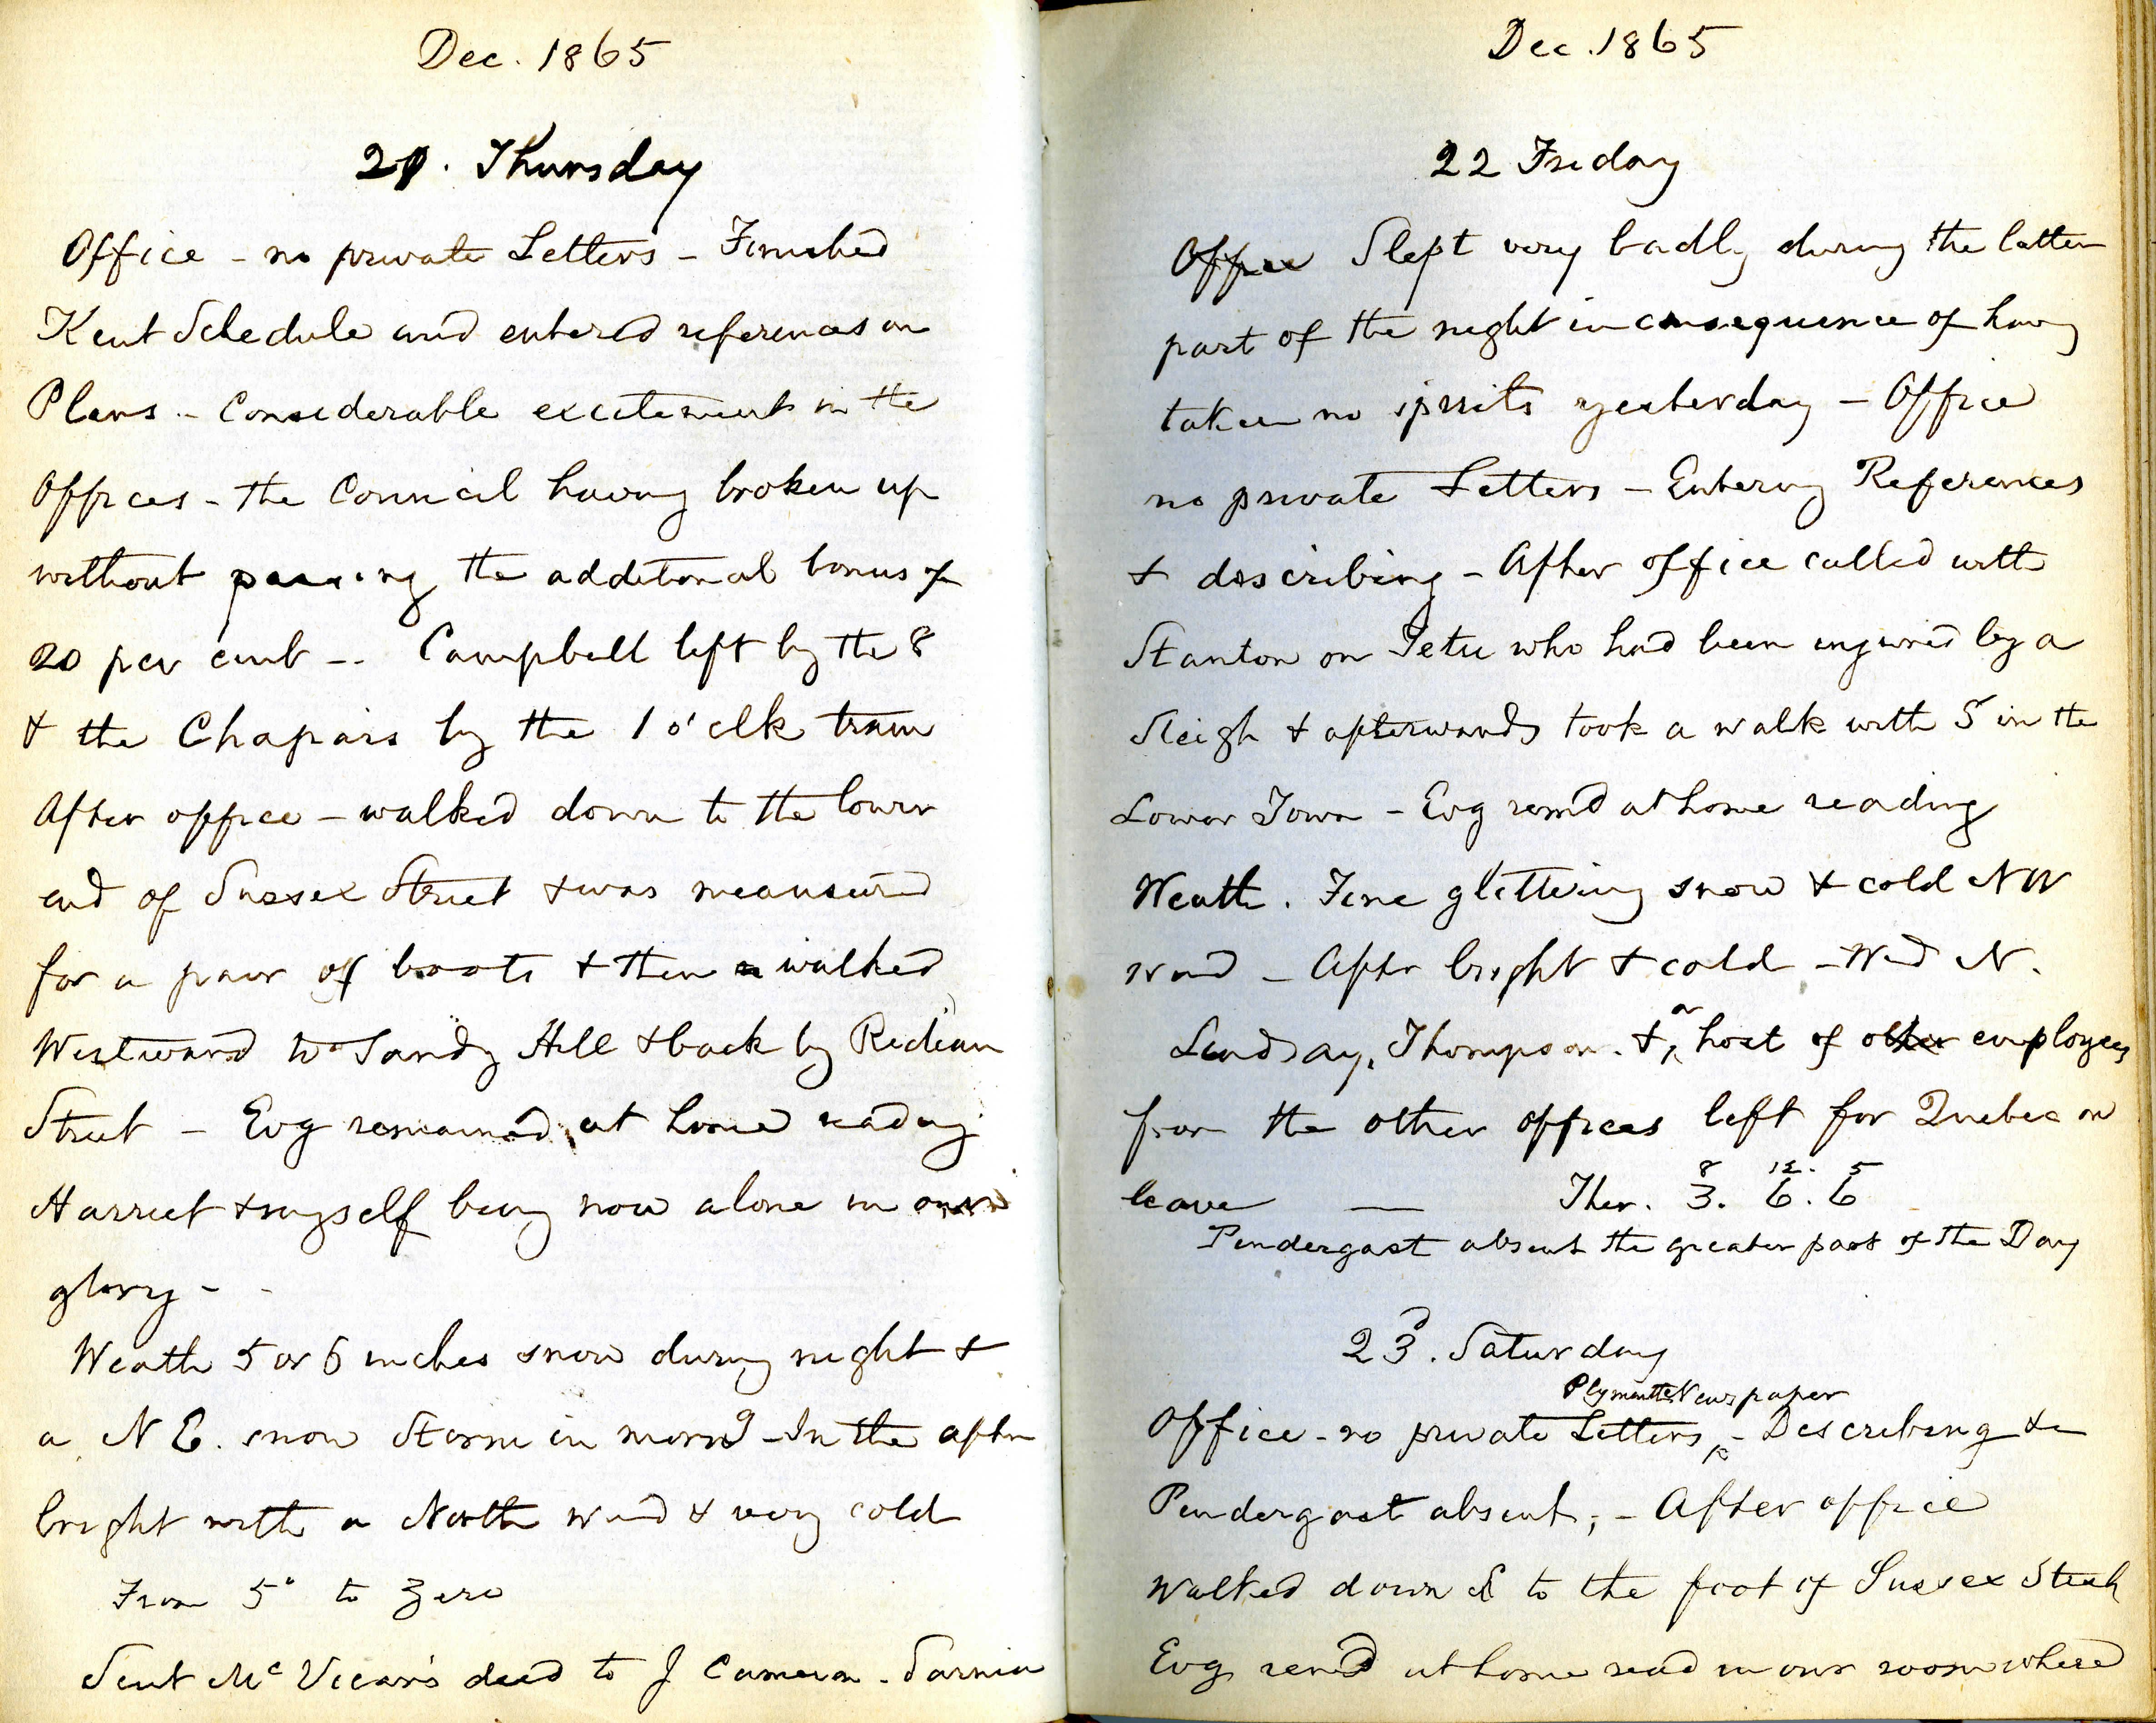 Dec. 1865
21. Thursday
Office - no private Letters - Finished
Kent Schedule and entered references on
Plans - Considerable excitement in the
Offices - the Council having broken up
without passing the additional bonus of
20 per cent -- Campbell left by the 8
& the Chapais by the 1 o'clk train
After office - walked down to the lower
end of Sussex Street & was measured
for a pair of boots & then walked
Westward to Sandy Hill & back by Rideau
Street - Evg remained at home reading
Harriet & myself being now alone in our
glory - -
Weath 5 or 6 inches snow during night &
a N E. snow Storm in morng - In the aftn
bright with a North wind & very cold
From 5° to Zero
Sent Mc Vicar's deed to J Cameron. Sarnia
Dec. 1865
22 Friday
Office Slept very badly during the latter
part of the night in consequence of having
taken no spirits yesterday - Office
no private Letters - Entering References
& describing - After office called with
Stanton on Tetu who had been injured by a
Sleigh & afterwards took a walk with S in the
Lower Town - Evg remd at home reading
Weath. Fine glittering snow & cold NW
wind - Aftn bright & cold - Wind N.
Lindsay, Thompson. & a host of other employees
from the other offices left for Quebec on
leave — Ther. 8 3. 12. 6. 5 6
Pendergast absent the greater part of the Day
23. Saturday
Plymouth Newspaper
Office - no private Letters, - Describing &c
Pendergast absent; - After office
Walked down to the foot of Sussex Street
Evg remd at home read in our room where